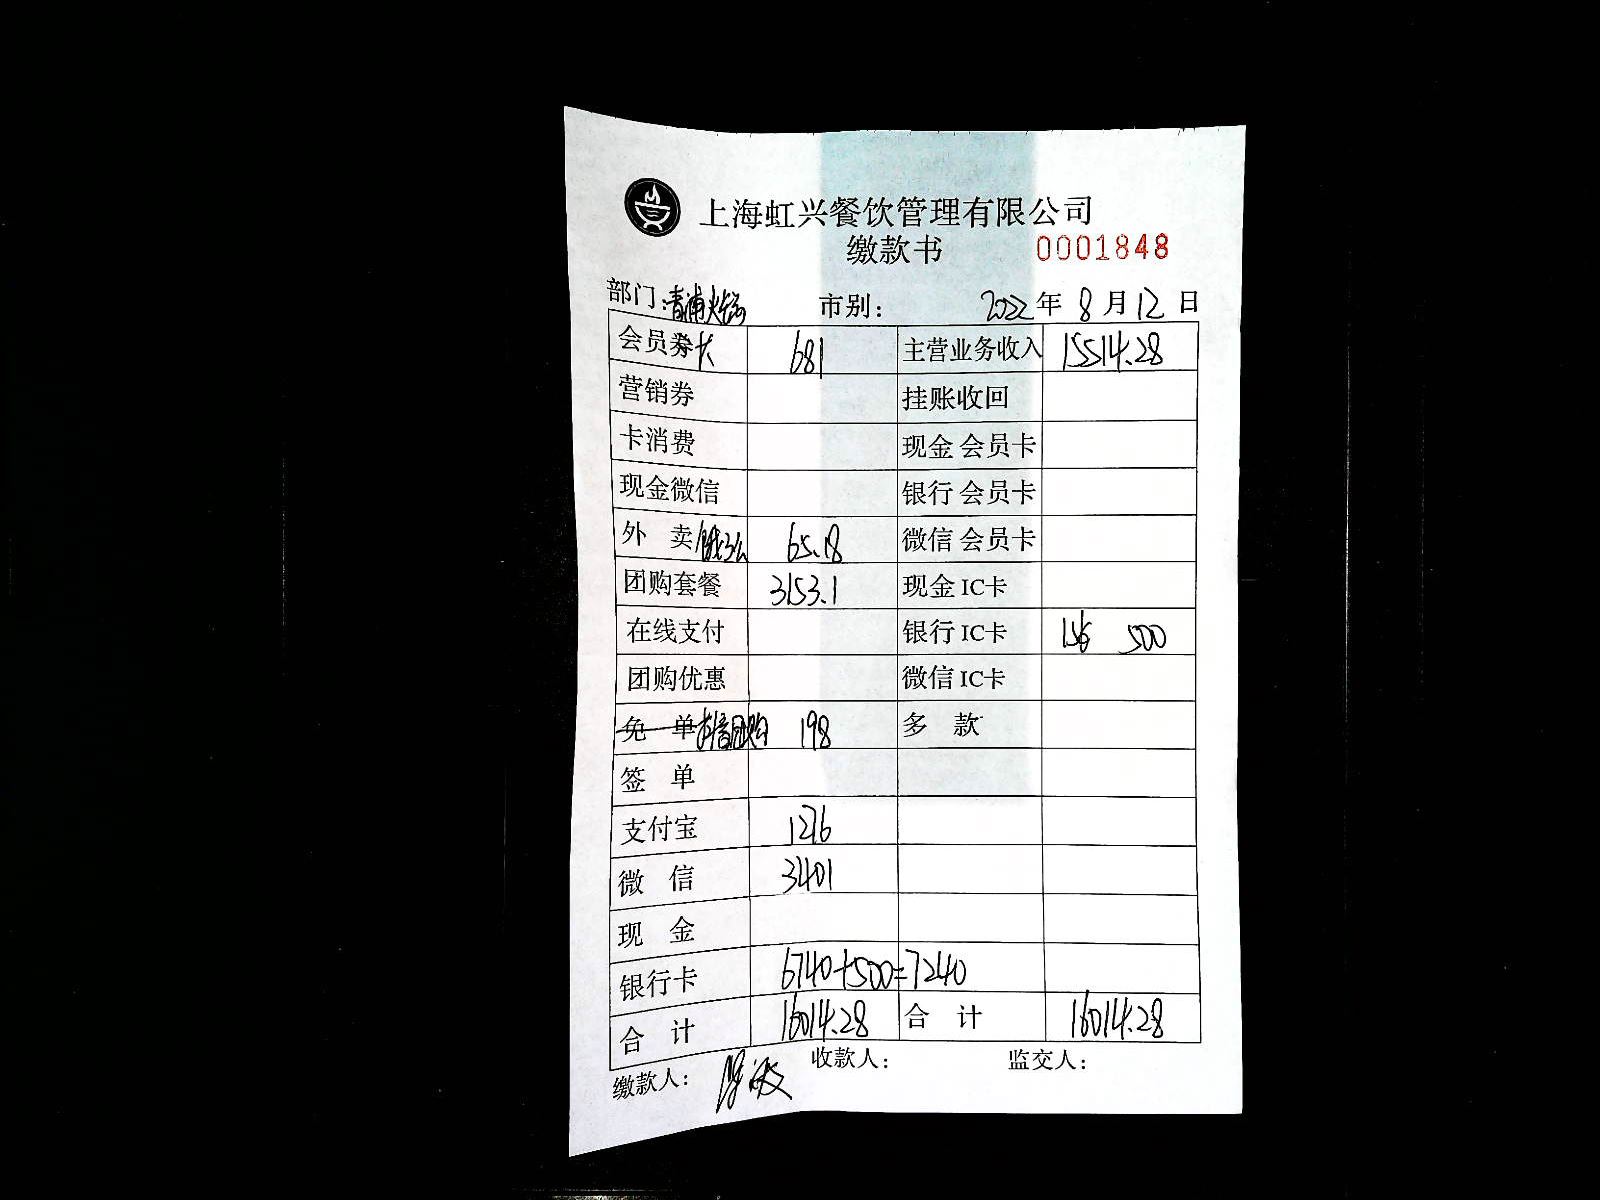 上海虹兴餐饮管理有限公司
缴款书 0001848
部门:青浦火锅 市别: 2022年8月12日
会员券卡 681 主营业务收入 15514.28
营销券 挂账收回
卡消费 现金 会员卡
现金微信 银行 会员卡
外 卖 饿了么 65.18 微信 会员卡
团购套餐 3153.1 现金 IC卡
在线支付 银行 IC卡 156 500
团购优惠 微信 IC卡
免 单 抖音团购 198 多 款
签 单
支付宝 1276
微 信 3401
现 金
银行卡 6740+500=7240
合 计 16014.28 合 计 16014.28
缴款人: 收款人: 监交人: